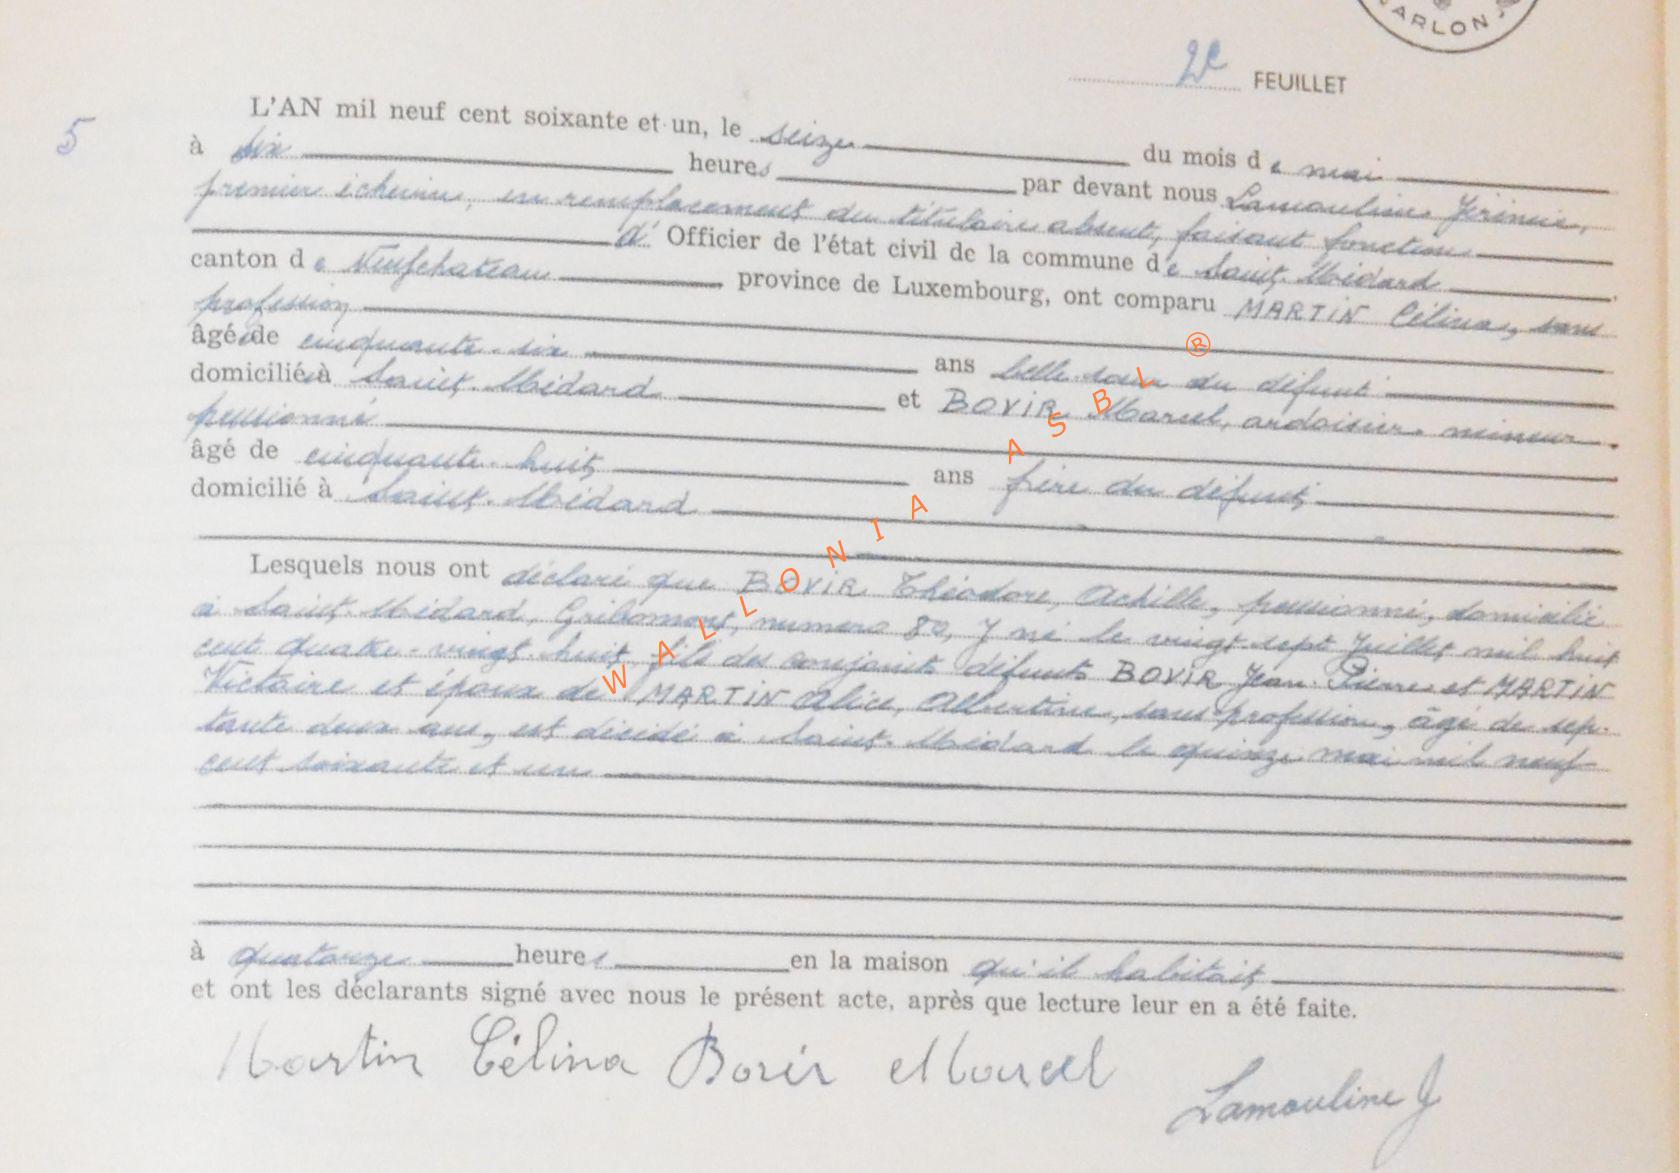 ARLON
2e FEUILLET
5
L'AN mil neuf cent soixante et un, le seize du mois de mai
à dix heures par devant nous Lamouline Jérémie,
premier échevin, en remplacement du titulaire absent, faisant fonction
d' Officier de l'état civil de la commune de Saint-Médard
canton de Neufchateau province de Luxembourg, ont comparu MARTIN Célina, sans
profession
âgée de cinquante-six ans belle-sœur du défunt
domiciliée à Saint-Médard et BOVIR Marcel, ardoisier-mineur
pensionné
âgé de cinquante-huit ans frère du défunt
domicilié à Saint-Médard
Lesquels nous ont déclaré que BOVIR Théodore, Achille, pensionné, domicilié
à Saint-Médard, Gribomont, numéro 80, y né le vingt-sept Juillet mil huit
cent quatre-vingt-huit, fils des conjoints défunts BOVIR Jean-Pierre et MARTIN
Victoire et époux de MARTIN Alice, Albertine, sans profession, âgé de sep-
tante deux ans, est décédé à Saint-Médard le quinze mai mil neuf
cent soixante et un
à quatorze heures en la maison qu'il habitait
et ont les déclarants signé avec nous le présent acte, après que lecture leur en a été faite.
Martin Célina Bovir Marcel
Lamouline J
WALLONIA ASBL ®